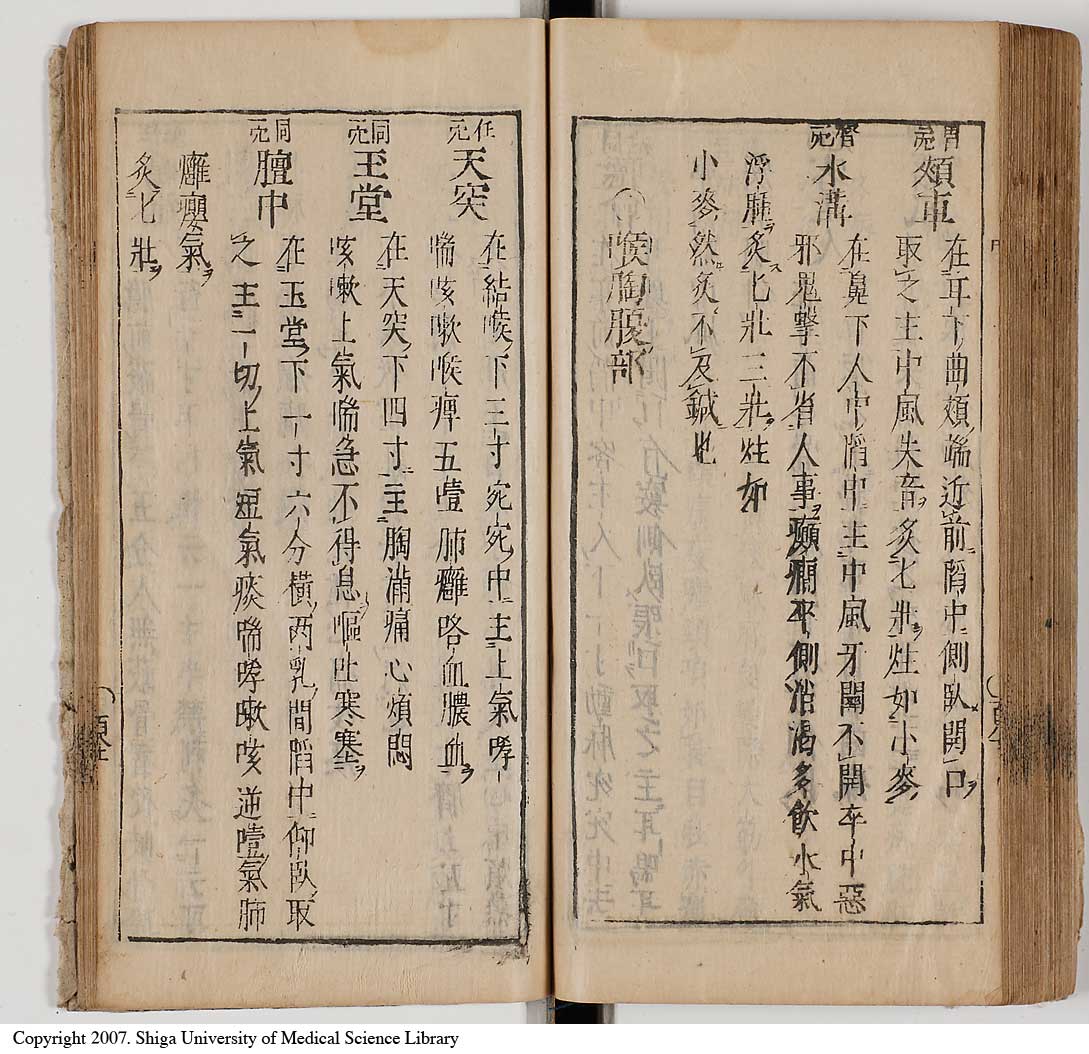 頰車 在耳下曲頰端近前陷中側臥開口ヲ
取之主中風失音ヲ灸七壯ヲ炷如小麥
水溝 在鼻下人中陷中主中風牙關不開卒中惡
邪鬼擊不省人事ヲ癲癇卒倒消渴多飲水氣
浮腫ヲ灸ス七壯三壯炷如
小麥然灸不及鍼也
〇喉胸腹部
任 天突 在結喉下三寸宛宛中主上氣哮
喘咳嗽喉痺五噎肺癰咯血膿血ヲ
同 玉堂 在天突下四寸主胸滿痛心煩悶
咳嗽上氣喘急不得息嘔吐寒
同 膻中 在玉堂下一寸六分橫兩乳間陷中仰臥取
之主一切上氣短氣痰喘哮嗽咳逆噎氣肺
癰癭氣ヲ
灸七壯ヲ
Copyright 2007. Shiga University of Medical Science Library